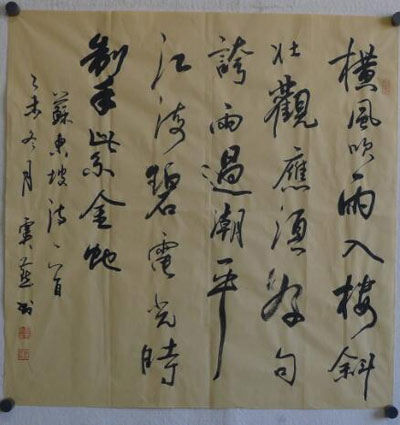 橫風吹雨入樓斜
壯觀應須好句
誇雨過潮平
江海碧電光時
掣紫金蛇
蘇東坡詩一首
乙未冬月